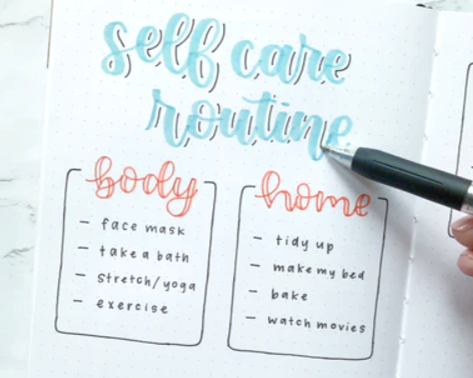 self care
routine
body
- face mask
- take a bath
- stretch/yoga
- exercise
home
- tidy up
- make my bed
- bake
- watch movies